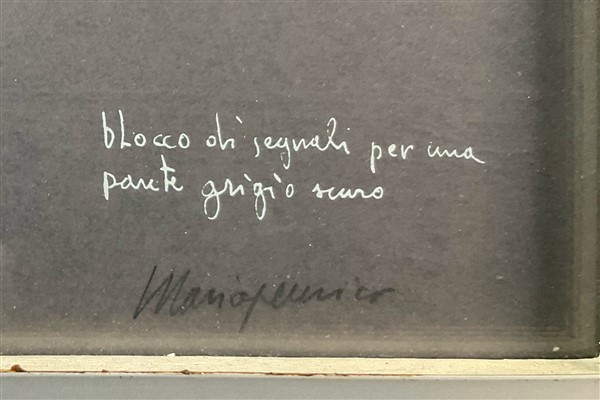 blocco di segnali per una
parete grigio scuro